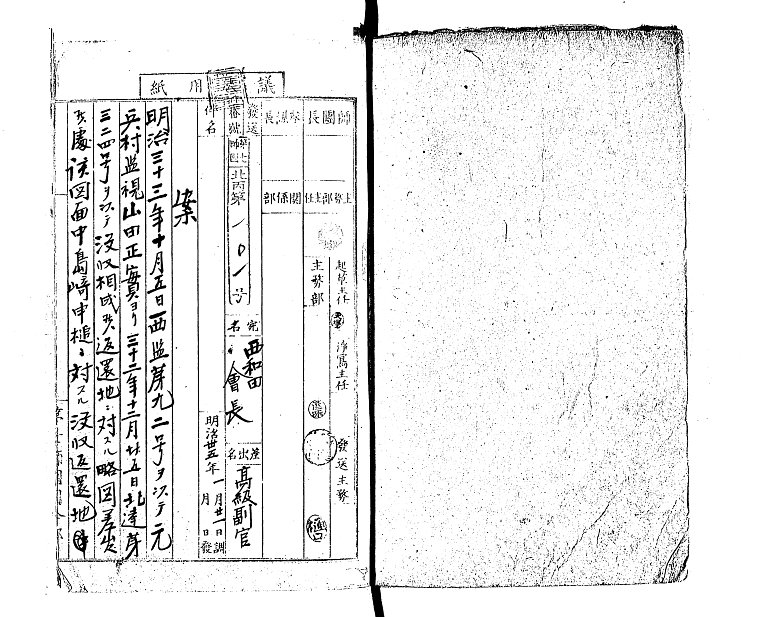 議 用紙
師團長
主務部主任 關係部
起草主任
淨寫主任
發送主務
主務部
發送
番號
北丙第一〇一号
宛名
西和田
會長
差出名
高級副官
件名
明治卅五年一月廿一日調
月 日發
案
明治三十三年十月五日西监第九二号ヲ以テ元
兵村监視山田正實ヨリ三十二年十二月廿五日北達第
三二四号ヲ以テ没収相成候返還地ニ対スル略図差出
候處該図面中島﨑申槌ニ対スル没収返還地